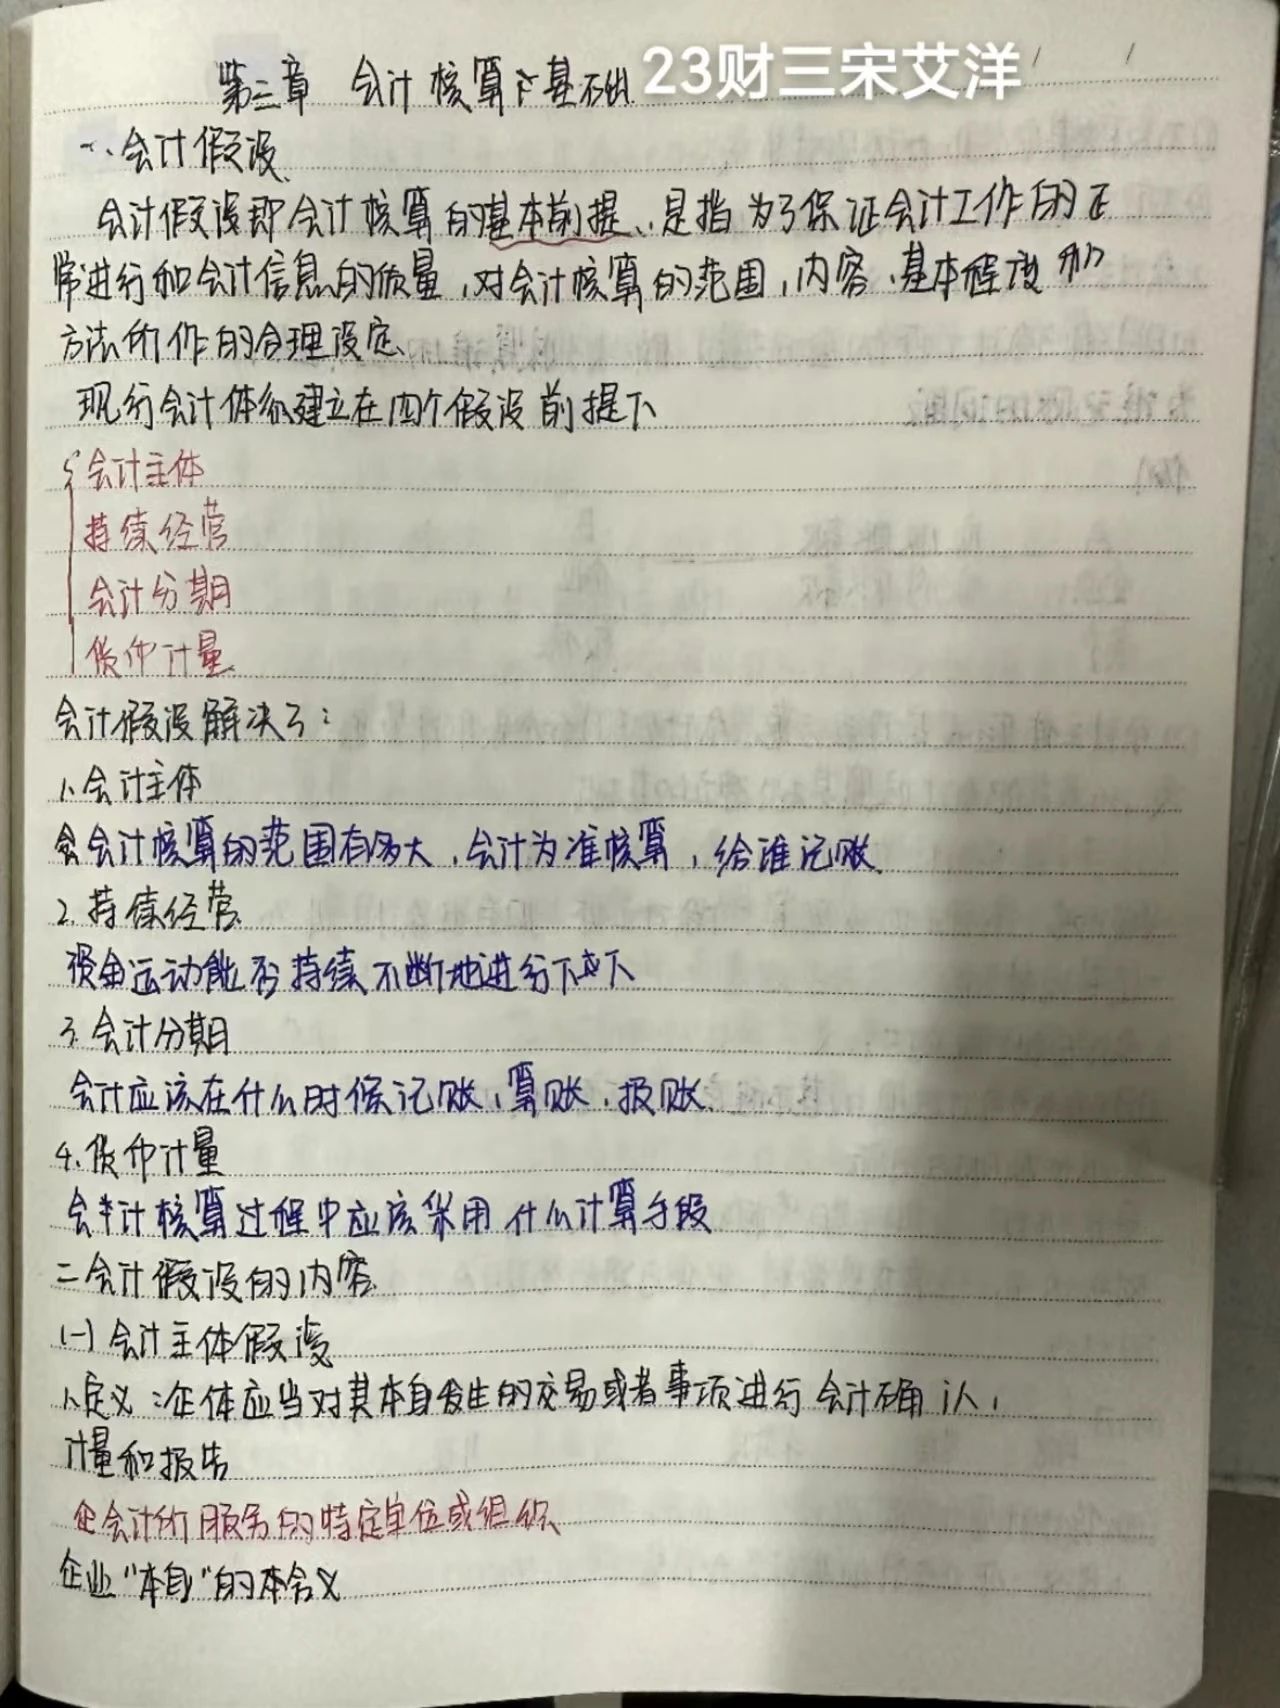 第三章 会计核算下基础 23财三宋艾洋
一、会计假设
会计假设即会计核算的基本前提、是指为了保证会计工作的正
常进行和会计信息的质量,对会计核算的范围,内容、基本程设和
方法所作的合理设定、
现行会计体系建立在四个假设前提下
会计主体
持续经营
会计分期
货币计量
会计假设解决了:
1、会计主体
会计核算的范围有多大、会计为谁核算,给谁记账
2、持续经营
资金运动能否持续不断地进行下去下
3、会计分期
会计应该在什么时候记账、算账、报账
4、货币计量
会计核算过程中应该采用什么计算手段
二会计假设的内容
(一)会计主体假设
1、定义:企体应当对其本身发生的交易或者事项进行会计确认,
计量和报告
会计所服务的特定单位或组织
企业“本身”的本含义